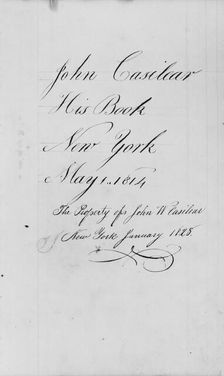 John Casilear
His Book
New York
May 1. 1814
The Property of John W Casilear
New York January 1828